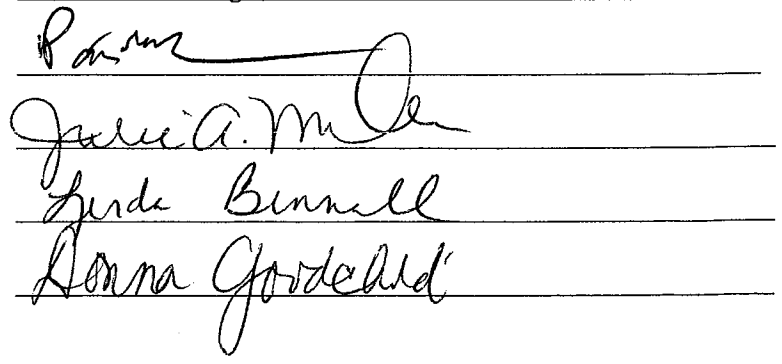 Julie A.
Linda Bunnell
Donna Goodchild